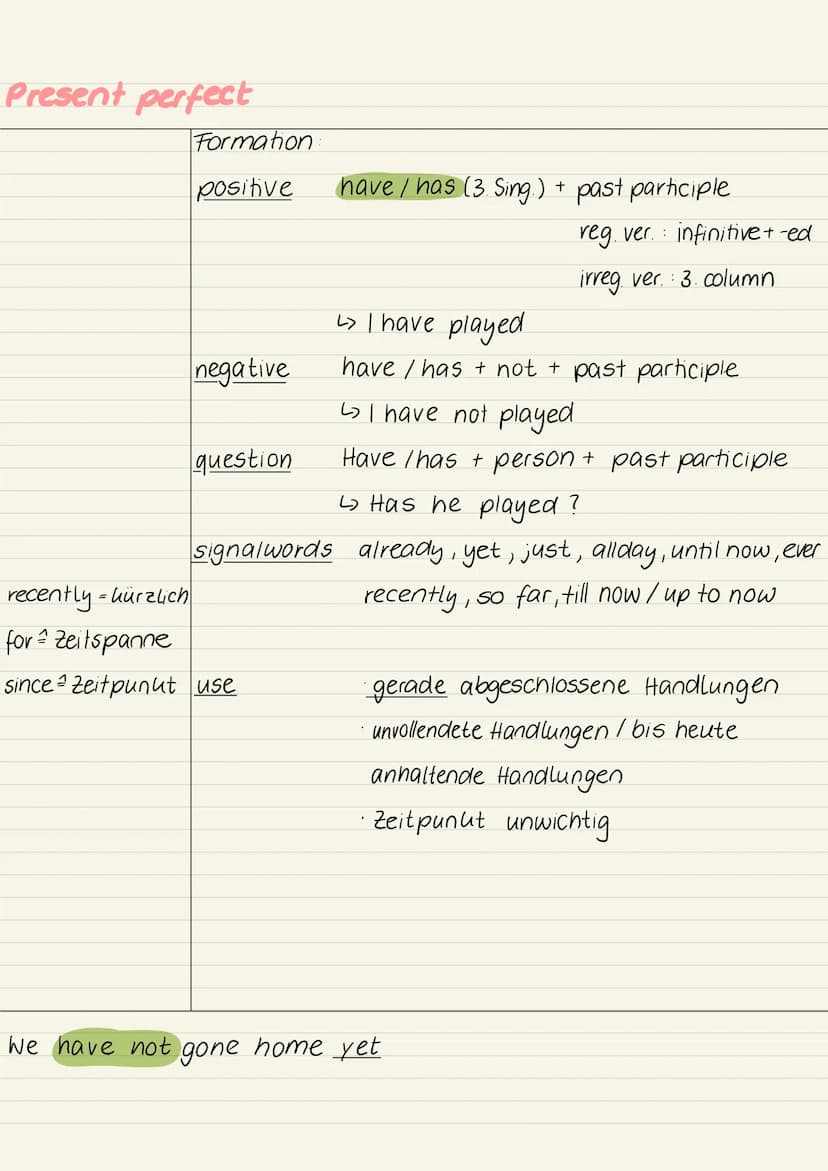 Present perfect
Formation:
positive have / has (3. Sing.) + past participle
reg. ver. : infinitive + -ed
irreg. ver. : 3. column
↳ I have played
negative have / has + not + past participle
↳ I have not played
question Have / has + person + past participle
↳ Has he played ?
signalwords already, yet, just, allday, until now, ever
recently = kürzlich recently, so far, till now / up to now
for ≙ Zeitspanne
since ≙ Zeitpunkt use · gerade abgeschlossene Handlungen
· unvollendete Handlungen / bis heute
anhaltende Handlungen
· Zeitpunkt unwichtig
We have not gone home yet